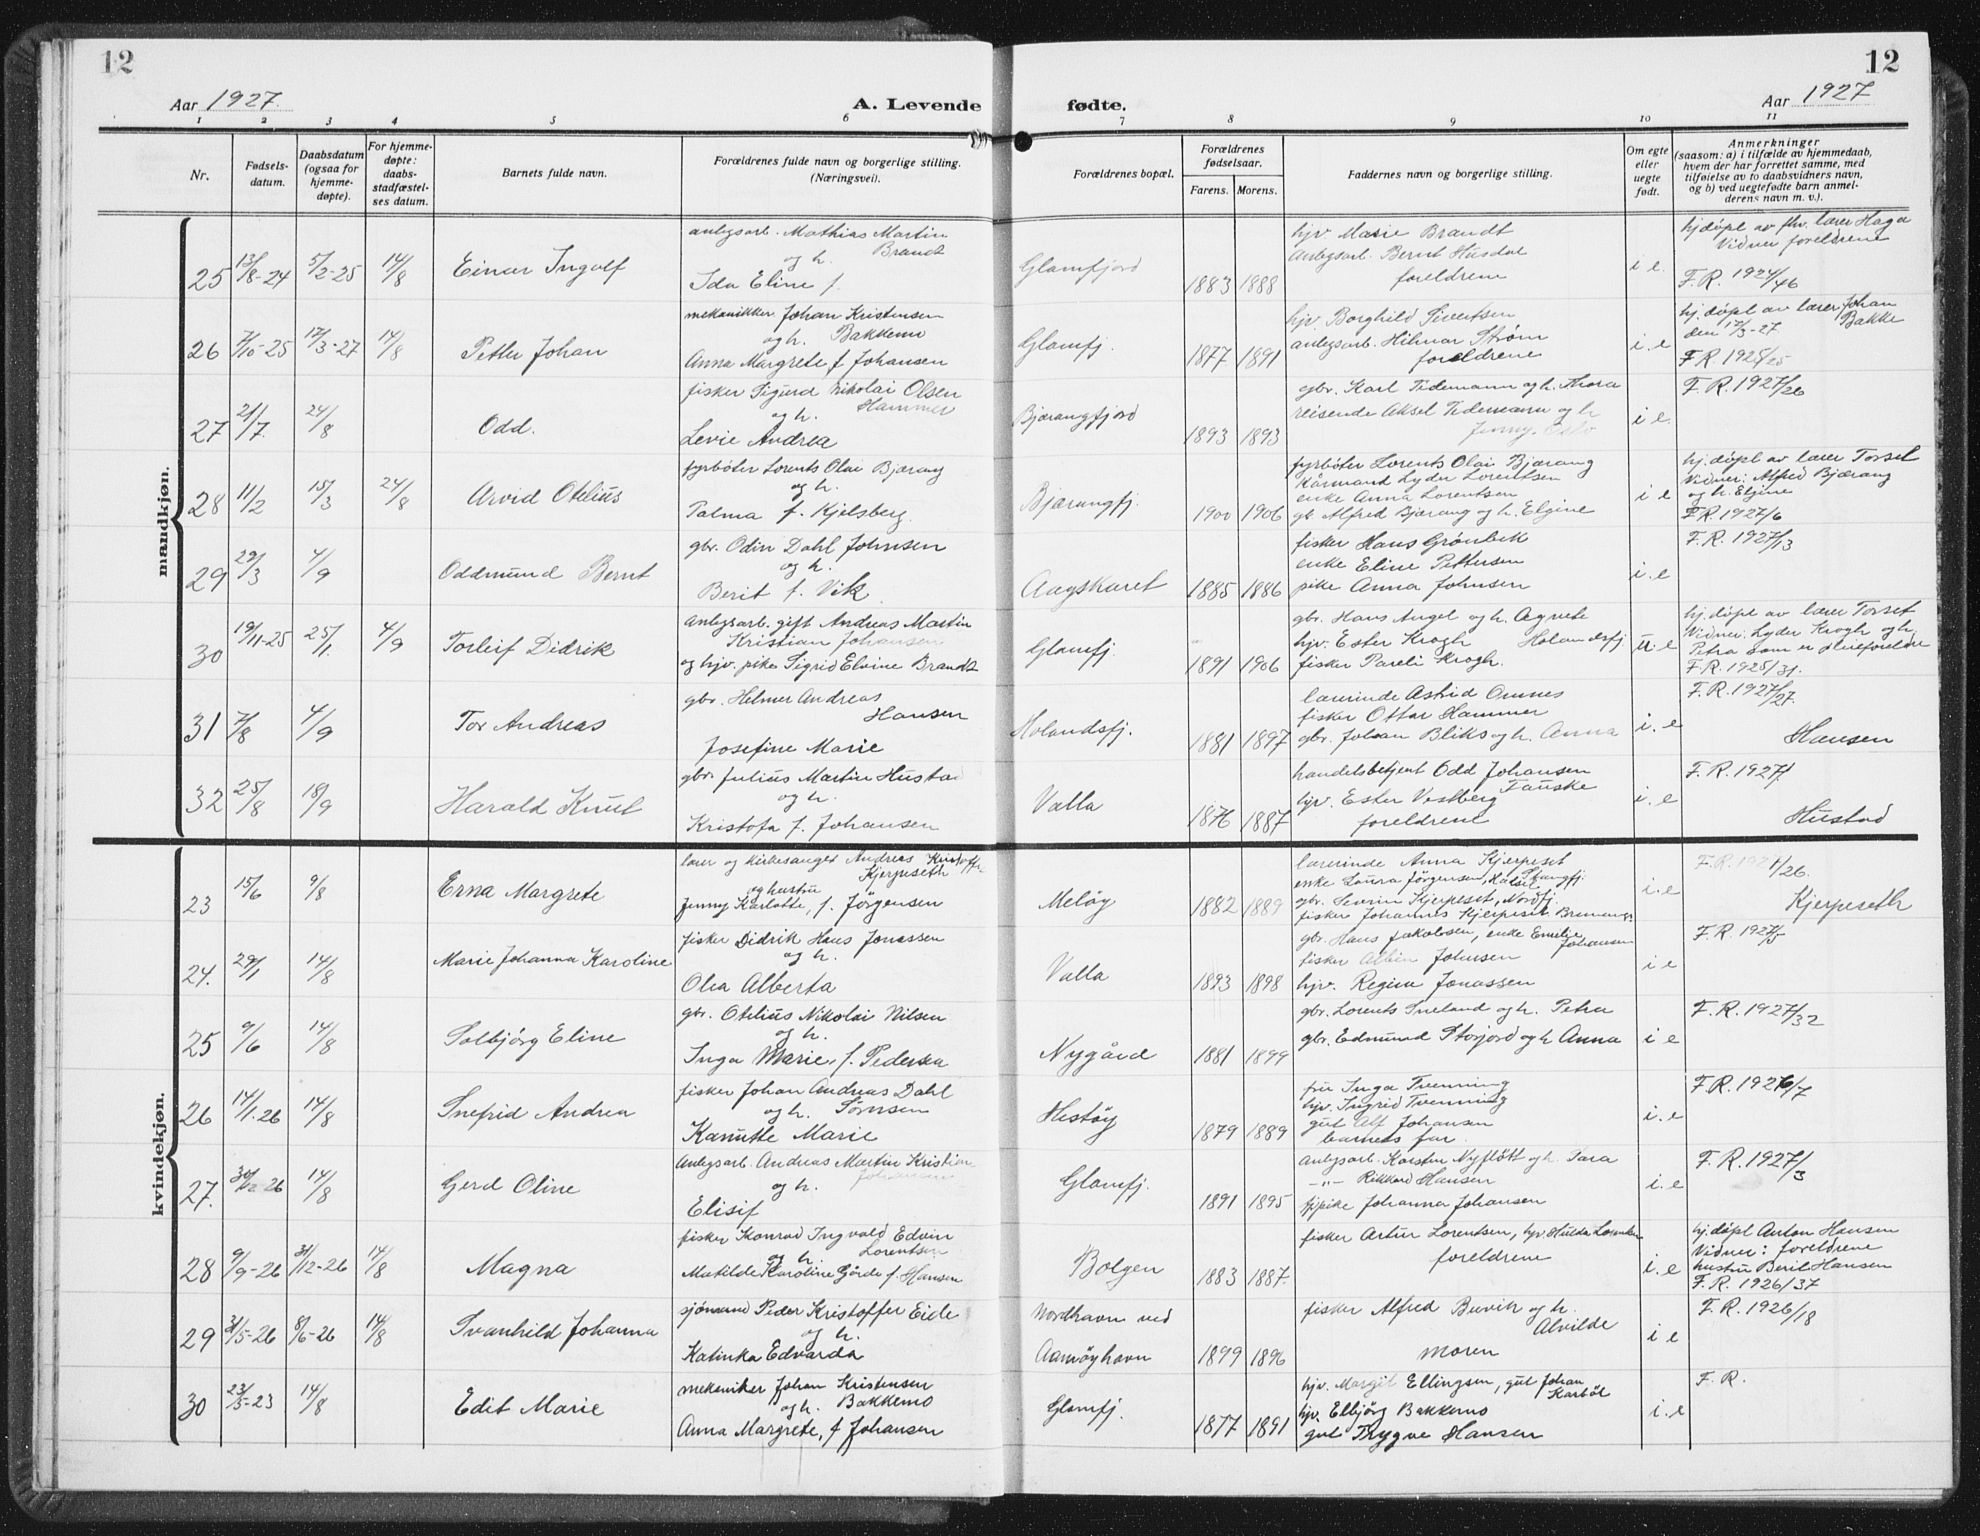 12
12
Aar 1927.
A. Levende
fødte.
Aar 1927
1 2 3 4 5 6 7 8 9 10 11
Nr.
Fødsels-
datum.
Daabsdatum
(ogsaa for
hjemme-
døpte).
For hjemme-
døpte:
daabs-
stadfæstel-
ses datum.
Barnets fulde navn.
Forældrenes fulde navn og borgerlige stilling.
(Næringsvei).
Forældrenes bopæl.
Forældrenes
fødselsaar.
Farens. Morens.
Faddernes navn og borgerlige stilling.
Om egte
eller
uegte
født.
Anmerkninger
(saasom: a) i tilfælde av hjemmedaab,
hvem der har forrettet samme, med
tilføielse av to daabsvidners navn,
og b) ved uegtefødte barn anmel-
derens navn m. v.).
mandkjøn.
25 13/8-24 5/2-25 14/8 Einar Ingolf
anlegsarb. Mathias Martin
Brandt
og h.
Ida Eline f.
Glomfjord
1883 1888
hjv. Marie Brandt
anlegsarb. Bernt Husdal
foreldrene
i e.
hj.døpt av fhv. lærer Haga
Vidner foreldrene
F.R. 1924/46
26 7/10-25 17/3-27 14/8 Petter Johan
mekanikker Johan Kristensen
og h. Bakkemo
Anna Margrete f Johansen
Glomfj.
1877 1891
hjv. Borghild Sivertsen
anlegsarb. Hilmar Strøm
foreldrene
i. e
hj. døpt av lærer Johan
den 17/3-27 Bakke
F.R. 1925/25
27 21/7. 24/8 Odd.
fisker Sigurd Nikolai Olsen
og h. Hammer
Levie Andrea
Bjærangfjord
1893 1893
gbr. Karl Tidemann og h. Thora
reisende Aksel Tidemann og h
Jenny. Oslo
i e.
F.R. 1927/26
28 11/2 15/3 24/8 Arvid Otelius
fyrbøter Lorents Olai Bjærang
og h.
Palma f. Kjelsberg.
Bjærangfj.
1900 1906
fyrbøter Lorents Olai Bjærang
Kårmand Lyder Lorentsen
enke Anna Lorentsen
gb. Alfred Bjærang og h. Elgine
i e
hj. døpt av lærer Torset
Vidner: Alfred Bjærang
og h. Elgine
F.R. 1927/6
29 29/3 4/9 Oddmund Bernt
gbr. Odin Dahl Johnsen
og h.
Berit f. Vik
Aagskaret
1885 1886
fisker Hans Grønbek
enke Eline Pettersen
pike Anna Johnsen
i. e
F.R. 1927/13
30 19/11-25 25/1. 4/9 Torleif Didrik
anlegsarb. gift Andreas Martin
Kristian Johansen
og hjv. pike Sigrid Elvine Brandt
Glomfj.
1891 1906
gbr. Hans Angel og h. Agnete
hjv. Ester Krogh Holandsfj.
fisker Pareli Krogh.
u. e
hj. døpt av lærer Torset
Vidner: Lyder Krogh og h.
Petra som er pleieforeldre
F.R. 1925/31.
31 7/8 4/9 Tor Andreas
gbr. Helmer Andreas
Hansen
Josefine Marie
Holandsfj.
1881 1897
lærerinde Astrid Omnes
fisker Ottar Hammer
gbr. Johan Bliks og h. Anna
i. e
F.R. 1927/27.
Hansen
32 25/8 18/9 Harald Knut
gbr. Julius Martin Hustad
og h.
Kristofa f. Johansen
Valla
1876 1887
handelsbetjent Odd Johansen
hjv. Ester Vestberg Fauske
foreldrene
i. e
F.R. 1927/
Hustad
kvindekjøn.
23 15/6 9/8 Erna Margrete
lærer og kirkesanger Andreas Kristoffer
Kjerpeseth
og hustru
Jenny Karlotte, f. Jørgensen
Meløy
1882 1889
lærerinde Anna Kjerpeset
enke Laura Jørgensen,
gbr. Severin Kjerpeset, Nordfj.
fisker Johannes Kjerpeset
i. e
F.R. 1927/26.
Kjerpeseth
24. 29/1 14/8 Marie Johanna Karoline
fisker Didrik Hans Jonassen
og h.
Olea Alberta
Valla
1893 1898
gbr. Hans Jakobsen, enke Emelie
Johansen
fisker Albin Johnsen
hjv. Regine Jonassen
i e
F.R. 1927/5
25 9/6 14/8 Solbjørg Eline
gbr. Otelius Nikolai Nilsen
og h.
Inga Marie, f. Pedersen
Nygård
1881 1899
gbr. Lorents Sneland og h. Petra
gbr. Edmund Storjord og h Anna
i e
F.R. 1927/32
26 14/1.26 14/8 Snefrid Andrea
fisker Johan Andreas Dahl
og h. Sørnsen
Kanutte Marie
Hestøy
1879 1889
fru Inga Tvenning
hjv. Ingrid Tvenning
gut Alf Johansen
barnets far.
i. e
F.R. 1926/7
27. 30/12 26 14/8 Gerd Oline
Anlegsarb. Andreas Martin Kristian
og h. Johansen
Elisif
Glomfj.
1891 1895
anlegsarb. Karsten Nyfløtt og h. Tara
-"- Rikkard Hansen
tjpike Johanna Johansen
i. e
F.R. 1927/3
28 9/9-26 31/12-26 14/8 Magna
fisker Konrad Ingvald Edvin
og h. Lorentsen
Matilde Karoline Gårde f. Hansen
Bolgen
1883 1887.
fisker Artur Lorentsen, hjv. Hulda Lorentsen
foreldrene
i. e
hj.døpt Anton Hansen
Vidner: foreldrene
hustru Beril Hansen
F.R. 1926/37
29 31/5-26 8/6-26 14/8 Svanhild Johanna
sjømand Peder Kristoffer Eide
og h.
Katinka Edvarda
Nordhavn ved
Aamøyhavn
1899 1896
fisker Alfred Buvik og h.
Alvilde
moren
i e
F.R. 1926/18
30 23/5-23 14/8 Edit Marie
mekaniker Johan Kristensen
og h. Bakkemo
Anna Margrete, f Johansen
Glomfj.
1877 1891
hjv. Margit Ellingsen, gut Johan
Karbøl
hjv. Elbjørg Bakkemo
gut Trygve Hansen
i. e
F.R.